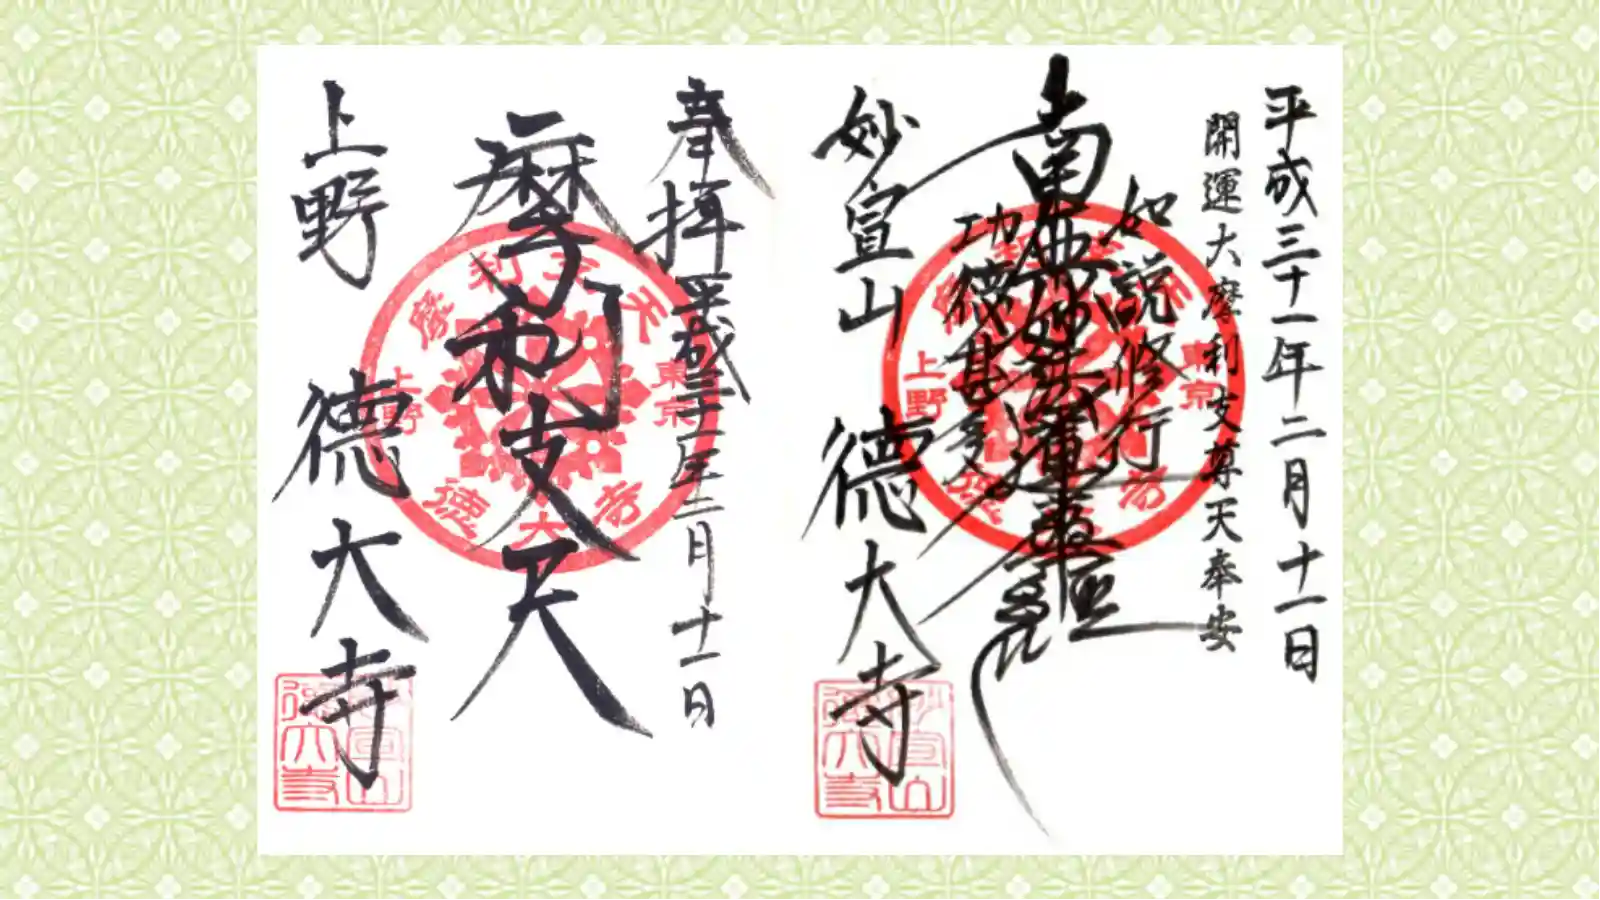 平成三十一年二月十一日
開運大摩利支尊天奉安
如説修行
南無妙法蓮華経
功徳甚多
妙宣山 徳大寺
摩利支天
東京
上野
徳大寺
妙宣山
徳大寺
奉拝 平成三十一年二月十一日
摩利支天
上野 徳大寺
摩利支天
東京
上野
徳大寺
妙宣山
徳大寺